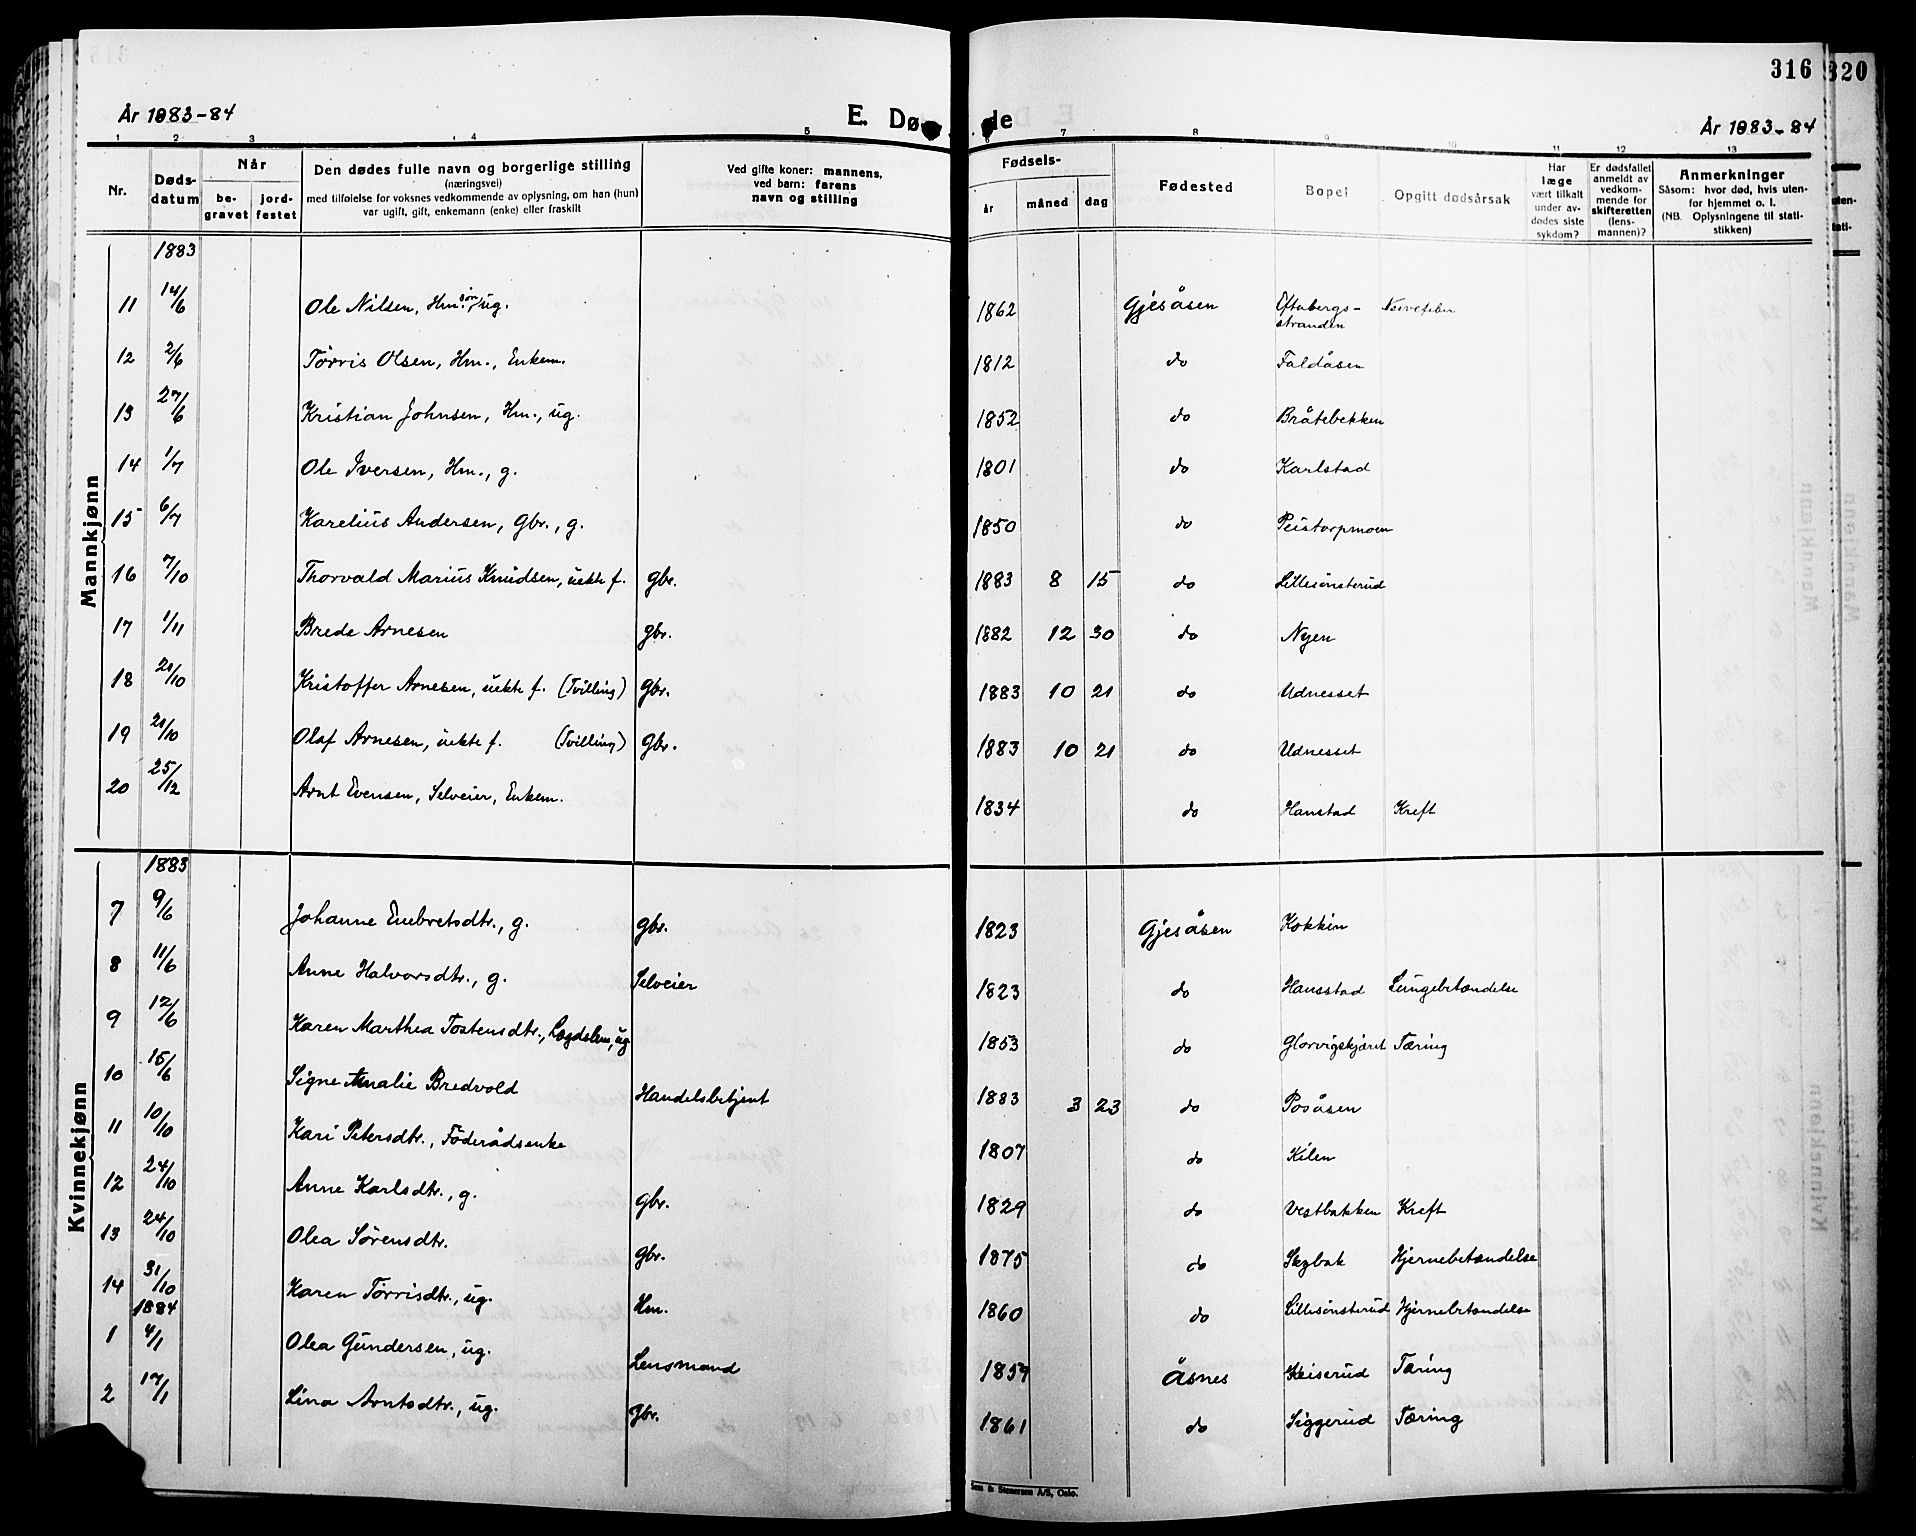 316
320
År 1883-84
E. Dø
de
År 1883-84
1 2 3 4 5 6 7 8 9 10 11 12 13
Nr.
Døds-
datum
Når
be-
gravet
jord-
festet
Den dødes fulle navn og borgerlige stilling
(næringsvei)
med tilføielse for voksnes vedkommende av oplysning, om han (hun)
var ugift, gift, enkemann (enke) eller fraskilt
Ved gifte koner: mannens,
ved barn: farens
navn og stilling
Fødsels-
år måned dag
Fødested
Bopel
Opgitt dødsårsak
Har
læge
vært tilkalt
under av-
dødes siste
sykdom?
Er dødsfallet
anmeldt av
vedkom-
mende for
skifteretten
(lens-
mannen)?
Anmerkninger
Såsom: hvor død, hvis uten-
for hjemmet o. l.
(NB. Oplysningene til stati-
stikken)
uten-
tati-
Mannkjønn
1883
11 14/6 Ole Nilsen, Hm.søn, ug. 1862 Gjesåsen Oftebergs-
stranden
12 2/6 Tørris Olsen, Hm., Enkem. 1812 do Faldåsen
13 27/6 Kristian Johnsen, Hm., ug. 1852 do Bråtebekken
14 1/7 Ole Iversen, Hm., g. 1801 do Karlstad
15 6/7 Karelius Andersen, Gbr., g. 1850 do Peistorpmoen
16 7/10 Thorvald Marius Knudsen, uekte f. gbr. 1883 8 15 do Lillesønsterud
17 1/11 Brede Arnesen gbr. 1882 12 30 do Nyen
18 21/10 Kristoffer Arnesen, uekte f. (Tvilling) gbr. 1883 10 21 do Udnesset
19 21/10 Olaf Arnesen, uekte f. (Tvilling) gbr. 1883 10 21 do Udnesset
20 25/12 Arnt Evensen, Selveier, Enkem. 1834 do Hanstad Kreft
Kvinnekjønn
1883
7 9/6 Johanne Enebretsdtr., g. gbr. 1823 Gjesåsen Kokkin
8 11/6 Anne Halvorsdtr., g. Selveier 1823 do Hansstad Lungebetændelse
9 12/6 Karen Marthea Tostensdtr., Lægdslem, ug 1853 do Glorvigskjæret Tæring
10 15/6 Signe Amalie Bredvold Handelsbetjent 1883 3 23 do Posåsen
11 10/10 Kari Petersdtr., Føderådsenke 1807 do Kilen
12 24/10 Anne Karlsdtr., g. gbr. 1829 do Vestbakken Kreft
13 24/10 Olea Sørensdtr. gbr. 1875 do Skybak Hjernebetændelse
14 31/10 Karen Tørrisdtr., ug. Hm. 1860 do Lillesønsterud Hjernebetændelse
1884
1 4/1 Olea Gundersen, ug. Lensmand 1859 Åsnes Keiserud Tæring
2 17/1 Lina Arntsdtr., ug. Gbr. 1861 do Siggerud Tæring
Sem & Stenersen A/S, Oslo.